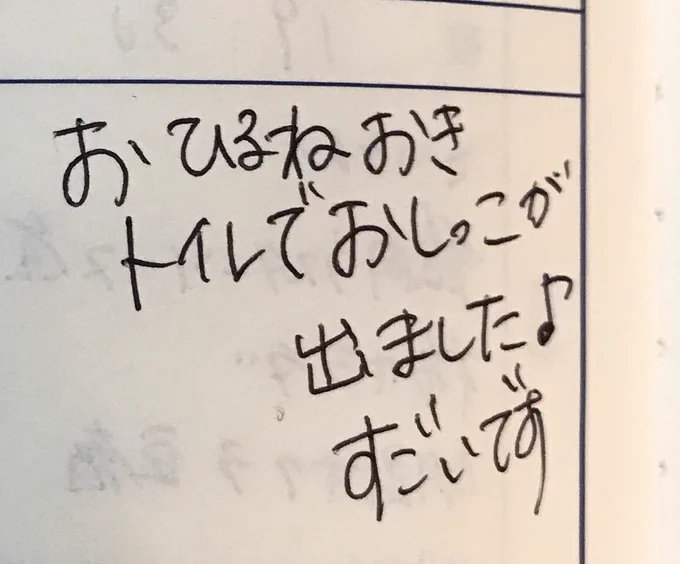 おひるねおき
トイレでおしっこが
出ました♪
すごいです